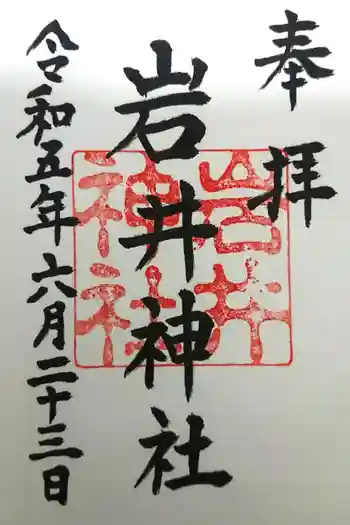 奉拝
岩井神社
岩井
神社
令和五年六月二十三日